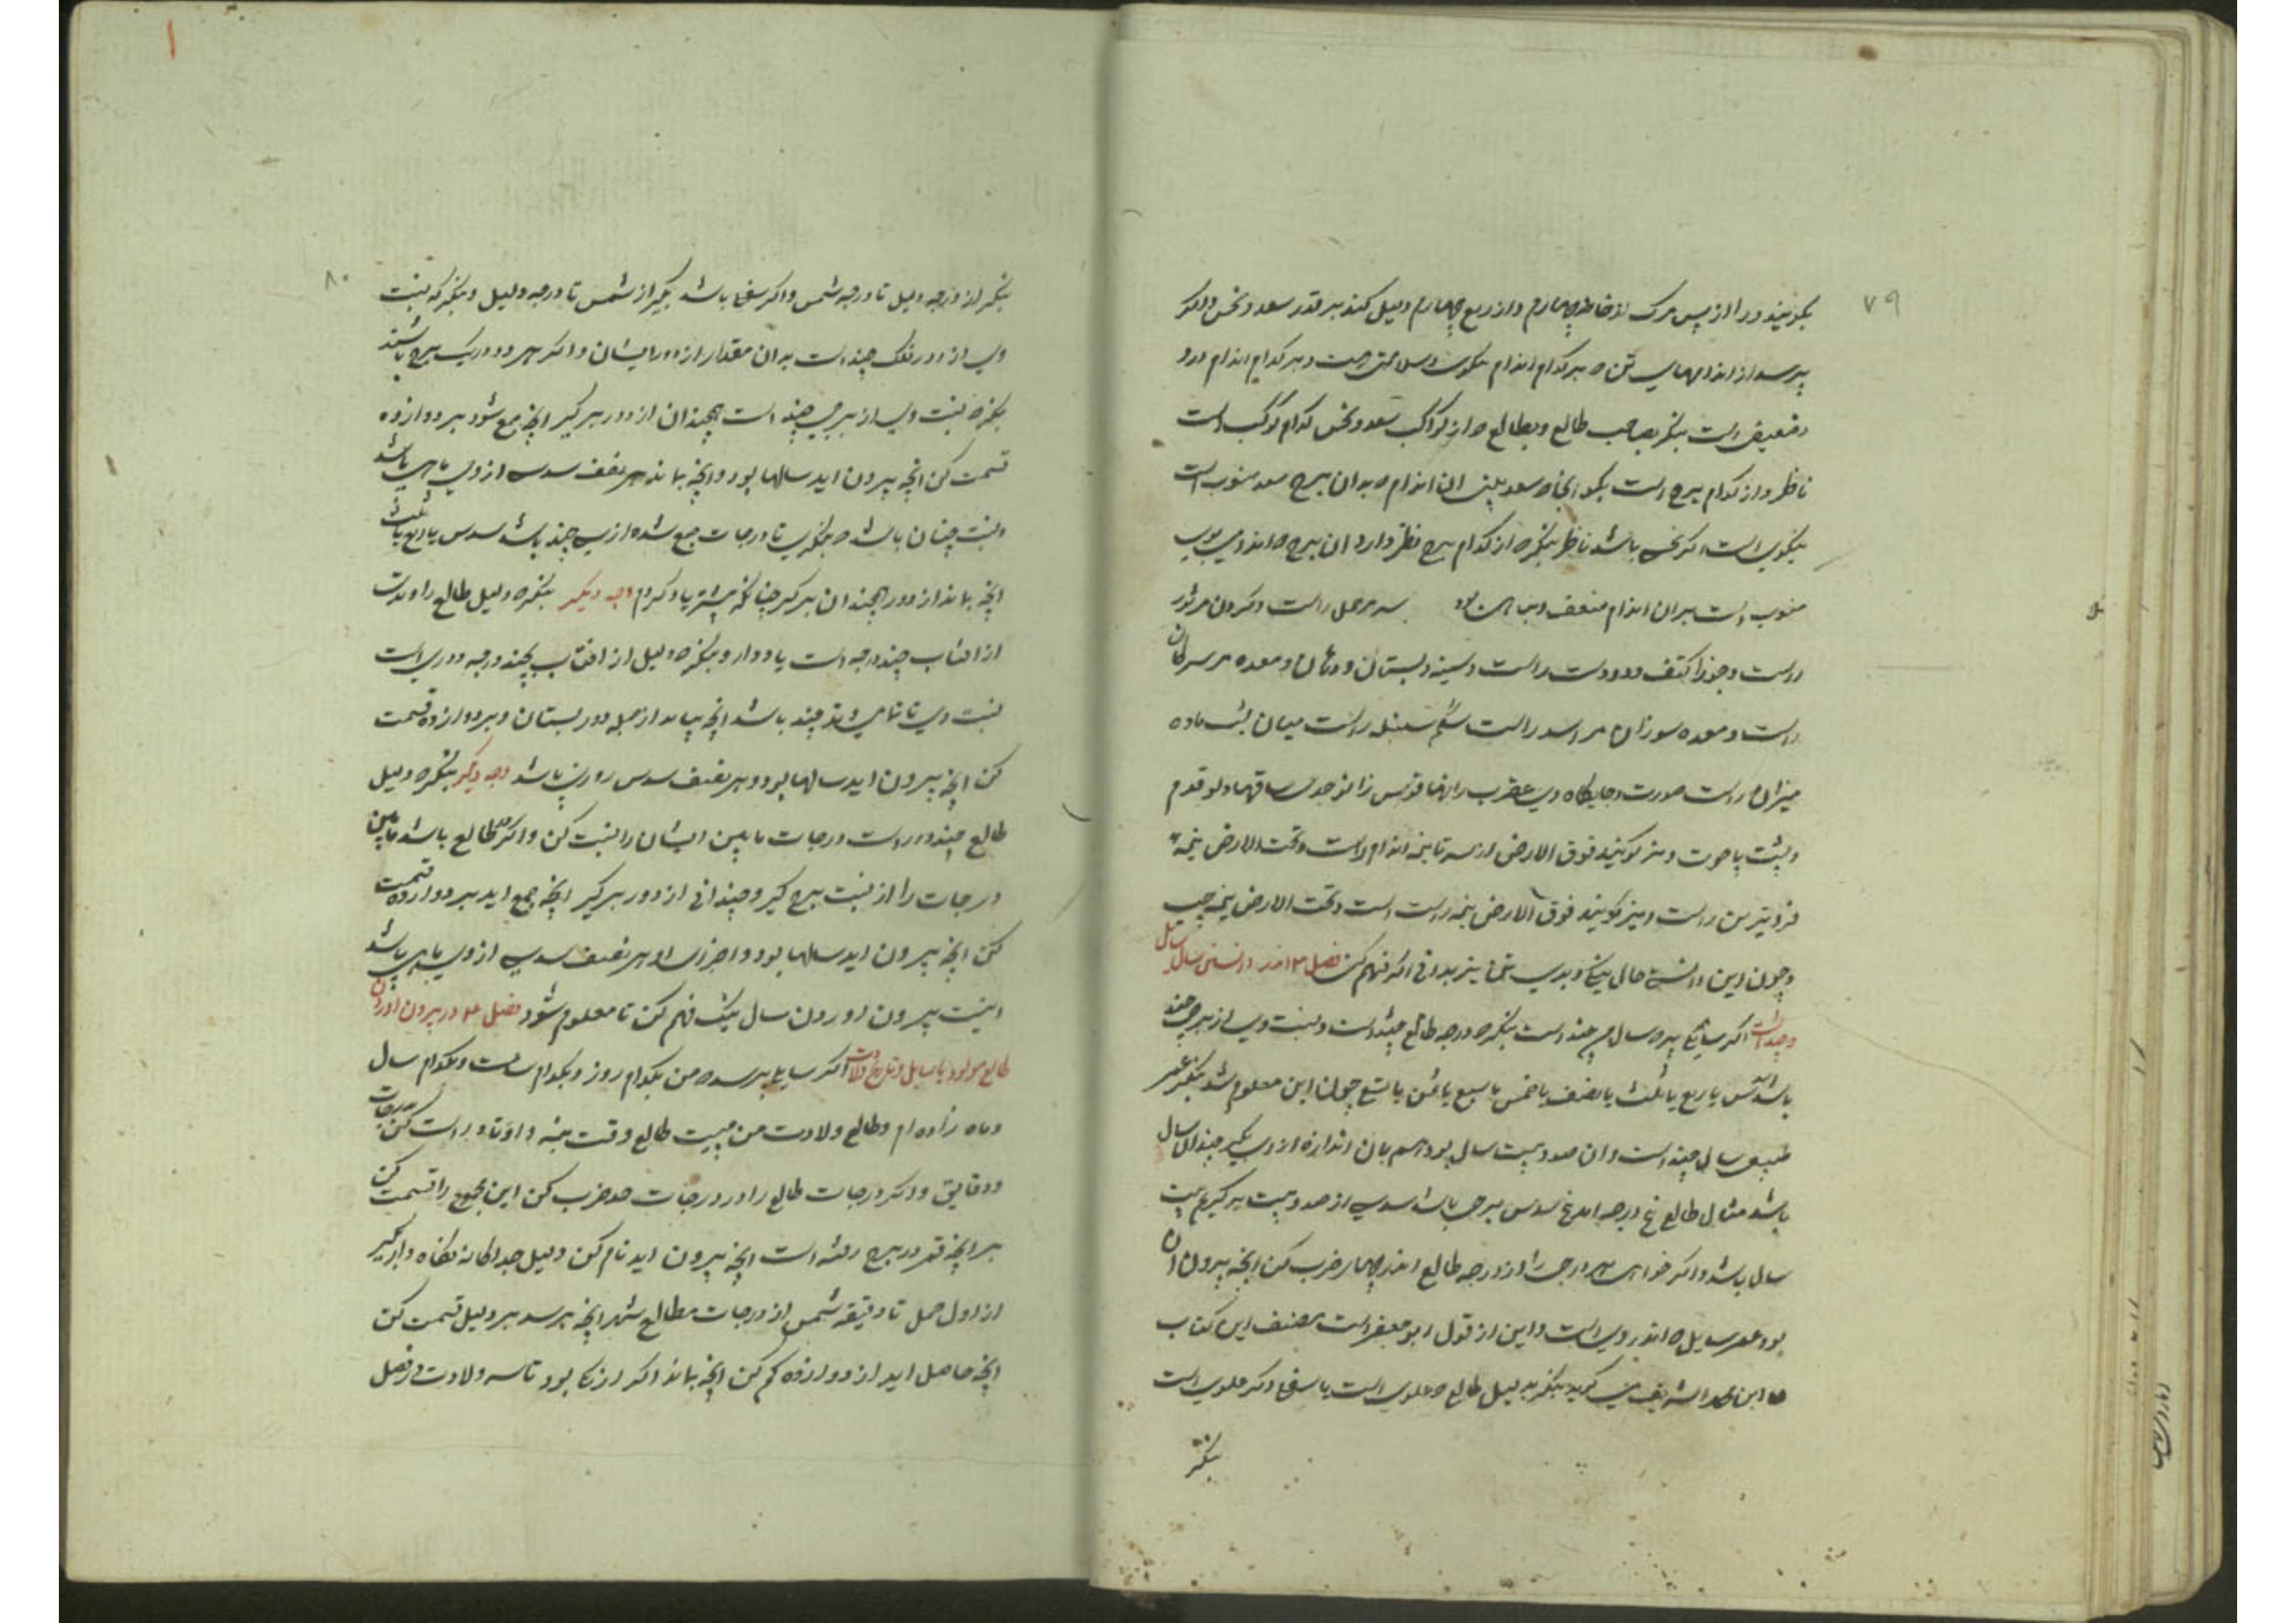 ۷۹
بگویند ورا از پس مرگ از خانه چهارم و از ربع چهارم دلیل کند بر قدر سعد و نحس و اکر
پرسد از اندامهای تن که بر کدام اندام نیکوست و سلامتی است و بر کدام اندام درد
و ضعیفی است بنگر بصاحب طالع و بطالع که از کواکب سعد و نحس کدام کوکب است
ناظر و از کدام برج است بگو آنجا که سعد بینی آن اندام که بدان برج سعد منسوب است
نیکوی است اکر نحس باشد ناظر بنگر که از کدام برج نظر دارد آن برج که اندامی بوی
منسوب است بران اندام ضعف و بیماری بود سر مر حمل راست و کردن مر ثور
راست و جوزا کتف و دو دست راست و سینه و پستان و دهان و معده مر سرطان
راست و معده سوزان مر اسد راست شکم سنبله راست میان پشت ماده
میزان راست عورت و جایگاه وی عقرب رانها قوس زانو جدی ساقها دلو قدم
و پشت پا حوت و نیز گویند فوق الارض از سر تا نیمه اندام راست و تحت الارض نیمه
فروترین راست و نیز گویند فوق الارض نیمه راست است و تحت الارض نیمه چپ
و چون این دانستی حال نیکی و بدی تن نیز بدانی اکر فهم کنی فصل ۳ اندر دانستن سال سایل
و چند است اکر سایلی پرسد سال من چند است بنگر که درجه طالع چند است و نسبت وی از برج چند
باشد سدس یا ربع یا ثلث یا نصف یا خمس یا سبع یا ثمن یا تسع چون این معلوم شد بنگر عمر
طبیعی سالی چند است و ان صد و بیست سال بود هم بان اندازه از وی بگیر چندان سال
باشد مثال طالع پنج درجه اسد پنج سدس برجی باشد سدسی از صد و بیست برگیریم بیست
سال باشد و اکر خواهی هر درجه را از درجه طالع اندر چهار ضرب کن آنچه بیرون آن
بود عمر سایل که اندر وی است و این از قول ابو جعفر است مصنف این کتاب
که ابن محمد الشریف می گوید بنگر بدلیل طالع که علوی است یا سفلی اکر علوی است
بنگر
۸۰
بنگر از درجه دلیل تا درجه شمس و اکر سفلی باشد بگیر از شمس تا درجه دلیل و بنگر که نسبت
وی از دور فلک چند است بدان مقدار از دور ایشان و اکر هر دو در یک برج باشند
بنگر که نسبت وی از برجی چند است همچندان از دور برگیر آنچه جمع شود بر دوازده
قسمت کن آنچه بیرون اید سالها بود و آنچه بماند هر نصف سدسی از وی ماهی باشد
و نسبت چنان باشد که بنگری تا درجات جمع شده از سی چند باشد سدس یا ربع یا ثلث
آنچه بماند از دور همچندان برگیر چنانکه پیشتر یاد کردم وجه دیگر بنگر که دلیل طالع را و تدت
از افتاب چند درجه است یاد دار و بنگر که دلیل از افتاب بچند درجه دوری است
نسبت وی تا چند باشد آنچه بیاید از جمله دور بستان و بر دوازده قسمت
کن آنچه بیرون اید سالها بود و هر نصف سدس روزی باشد وجه دیگر بنگر که دلیل
طالع چند دور است درجات مابین ایشان را نسبت کن و اکر در طالع باشد مابین
درجات را از نسبت برج گیر و چندانی از دور برگیر آنچه جمع اید بر دوازده قسمت
کن آنچه بیرون اید سالها بود و اجزای او هر نصف سدسی از وی ماهی باشد
اینست بیرون اوردن سال نیک فهم کن تا معلوم شود فصل ۴ در بیرون اوردن
طالع مولود یا سایل و تاریخ ولادت اکر سایلی پرسد که من بکدام روز و بکدام ساعت و بکدام سال
و ماه زاده ام و طالع ولادت من چیست طالع وقت بنه و اوتاد راست کن بدرجات
و دقایق و دیگر درجات طالع را در درجات حد ضرب کن این مجموع را قسمت کن
بر آنچه قمر در برج رفته است آنچه بیرون اید نام کن دلیل جداگانه نگاه دار بگیر
از اول حمل تا دقیقه شمس از درجات مطالع شهر آنچه برسد بر دلیل قسمت کن
آنچه حاصل اید از دوازده کم کن آنچه بماند اکر از بود تاسه ولادت در فصل